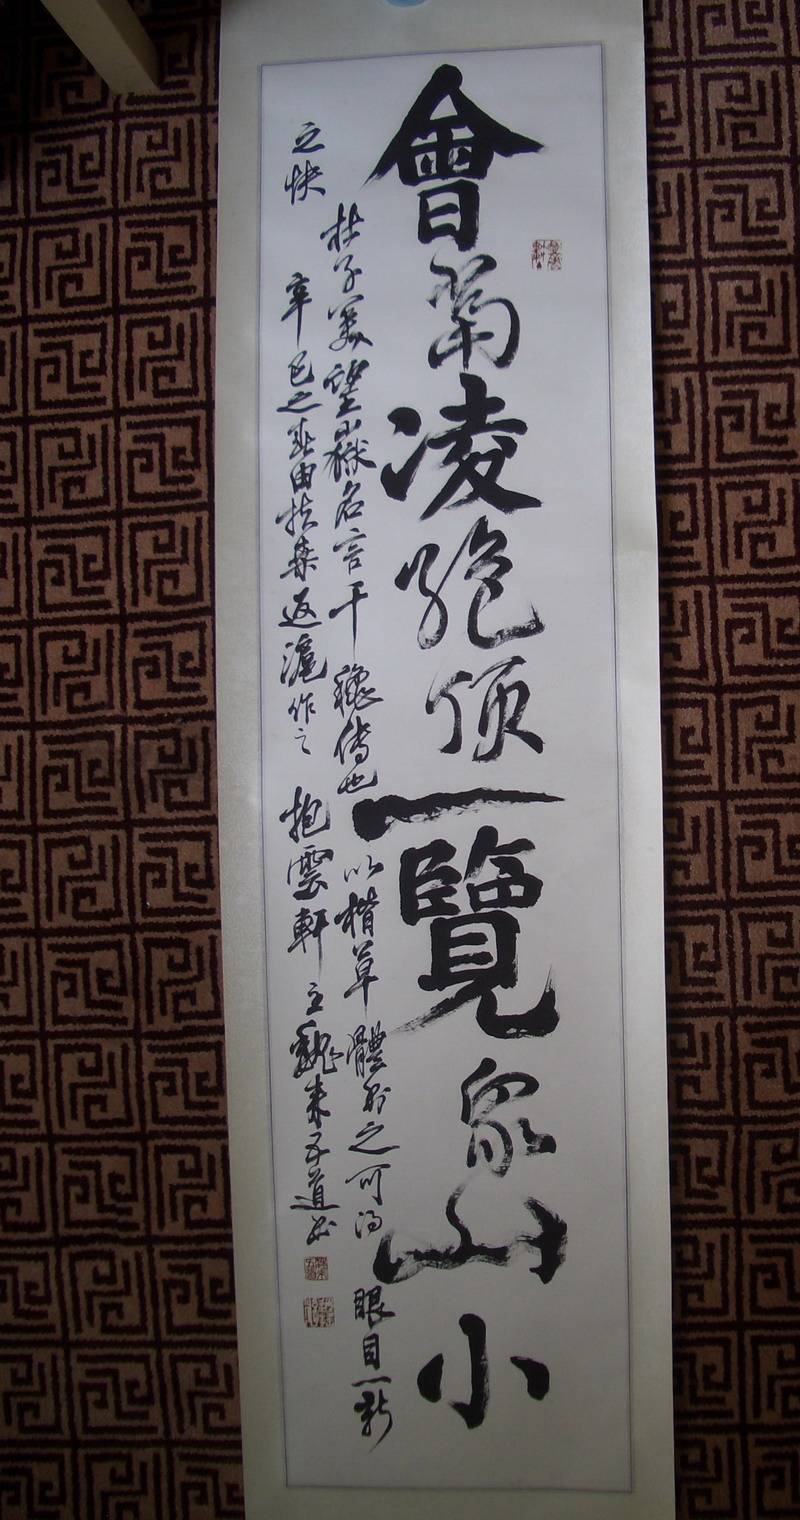 會當凌絕頂一覽眾山小
杜子美望嶽名言千穐傳也以楷草體書之可得眼目一新
之快辛巳之春由扶桑返滬作之抱雲軒主魏來五道書